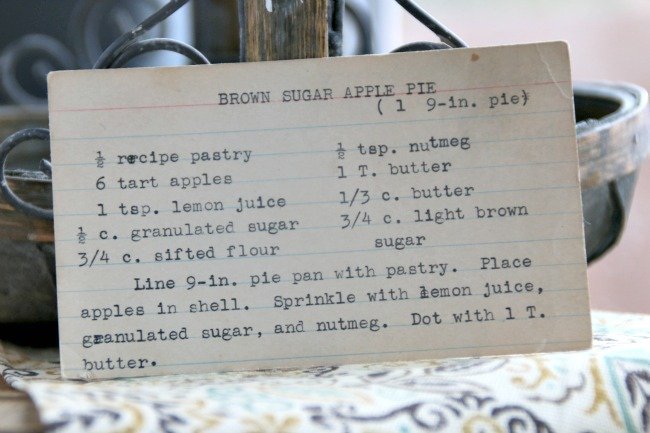 BROWN SUGAR APPLE PIE
( 1 9-in. pie)
½ recipe pastry
6 tart apples
1 tsp. lemon juice
½ c. granulated sugar
3/4 c. sifted flour
½ tsp. nutmeg
1 T. butter
1/3 c. butter
3/4 c. light brown
sugar
Line 9-in. pie pan with pastry. Place
apples in shell. Sprinkle with lemon juice,
granulated sugar, and nutmeg. Dot with 1 T.
butter.